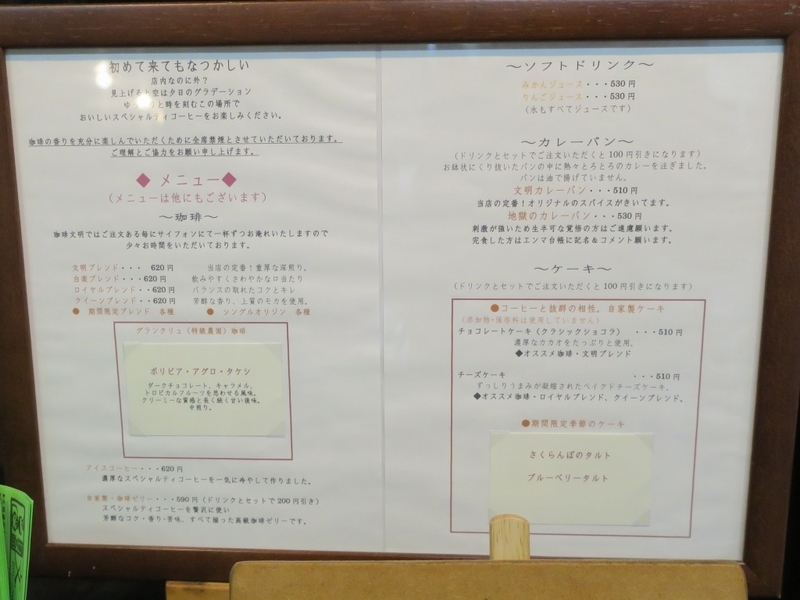 初めて来てもなつかしい
店内なのに外？
見上げると空は夕日のグラデーション
ゆっくりと時を刻むこの場所で
おいしいスペシャルティコーヒーをお楽しみください。
珈琲の香りを充分に楽しんでいただくために全席禁煙とさせていただいております。
ご理解とご協力をお願い申し上げます。
◆ メニュー◆
（メニューは他にもございます）
～珈琲～
珈琲文明ではご注文ある毎にサイフォンにて一杯ずつお淹れいたしますので
少々お時間をいただいております。
文明ブレンド・・・ 620円 当店の定番！重厚な深煎り。
白楽ブレンド・・・ 620円 飲みやすくさわやかな口当たり
ロイヤルブレンド・・620円 バランスの取れたコクとキレ
クイーンブレンド・・620円 芳醇な香り、上質のモカを使用。
● 期間限定ブレンド 各種 ● シングルオリジン 各種
グランクリュ（特級農園）珈琲
ボリビア・アグロ・タケシ
ダークチョコレート、キャラメル、
トロピカルフルーツを思わせる風味。
クリーミーな質感と長く続く甘い後味。
中煎り。
アイスコーヒー・・・620円
濃厚なスペシャルティコーヒーを一気に冷やして作りました。
自家製・珈琲ゼリー・・・590円（ドリンクとセットで200円引き）
スペシャルティコーヒーを贅沢に使い
芳醇なコク・香り・苦味、すべて揃った高級珈琲ゼリーです。
～ソフトドリンク～
みかんジュース・・・530円
りんごジュース・・・530円
（氷もすべてジュースです）
～カレーパン～
（ドリンクとセットでご注文いただくと100円引きになります）
お鉢状にくり抜いたパンの中に熱々とろとろのカレーを注ぎました。
パンは油で揚げていません。
文明カレーパン・・・510円
当店の定番！オリジナルのスパイスがきいてます。
地獄のカレーパン・・・530円
刺激が強いため生半可な覚悟の方はご遠慮願います。
完食した方はエンマ台帳に記名＆コメント願います。
～ケーキ～
（ドリンクとセットでご注文いただくと100円引きになります）
●コーヒーと抜群の相性。自家製ケーキ
（添加物・保存料は使用していません）
チョコレートケーキ（クラシックショコラ） ・・・510円
濃厚なカカオをたっぷりと使用。
◆オススメ珈琲・文明ブレンド
チーズケーキ ・・・510円
ずっしりうまみが凝縮されたベイクドチーズケーキ。
◆オススメ珈琲・ロイヤルブレンド、クイーンブレンド。
●期間限定季節のケーキ
さくらんぼのタルト
ブルーベリータルト